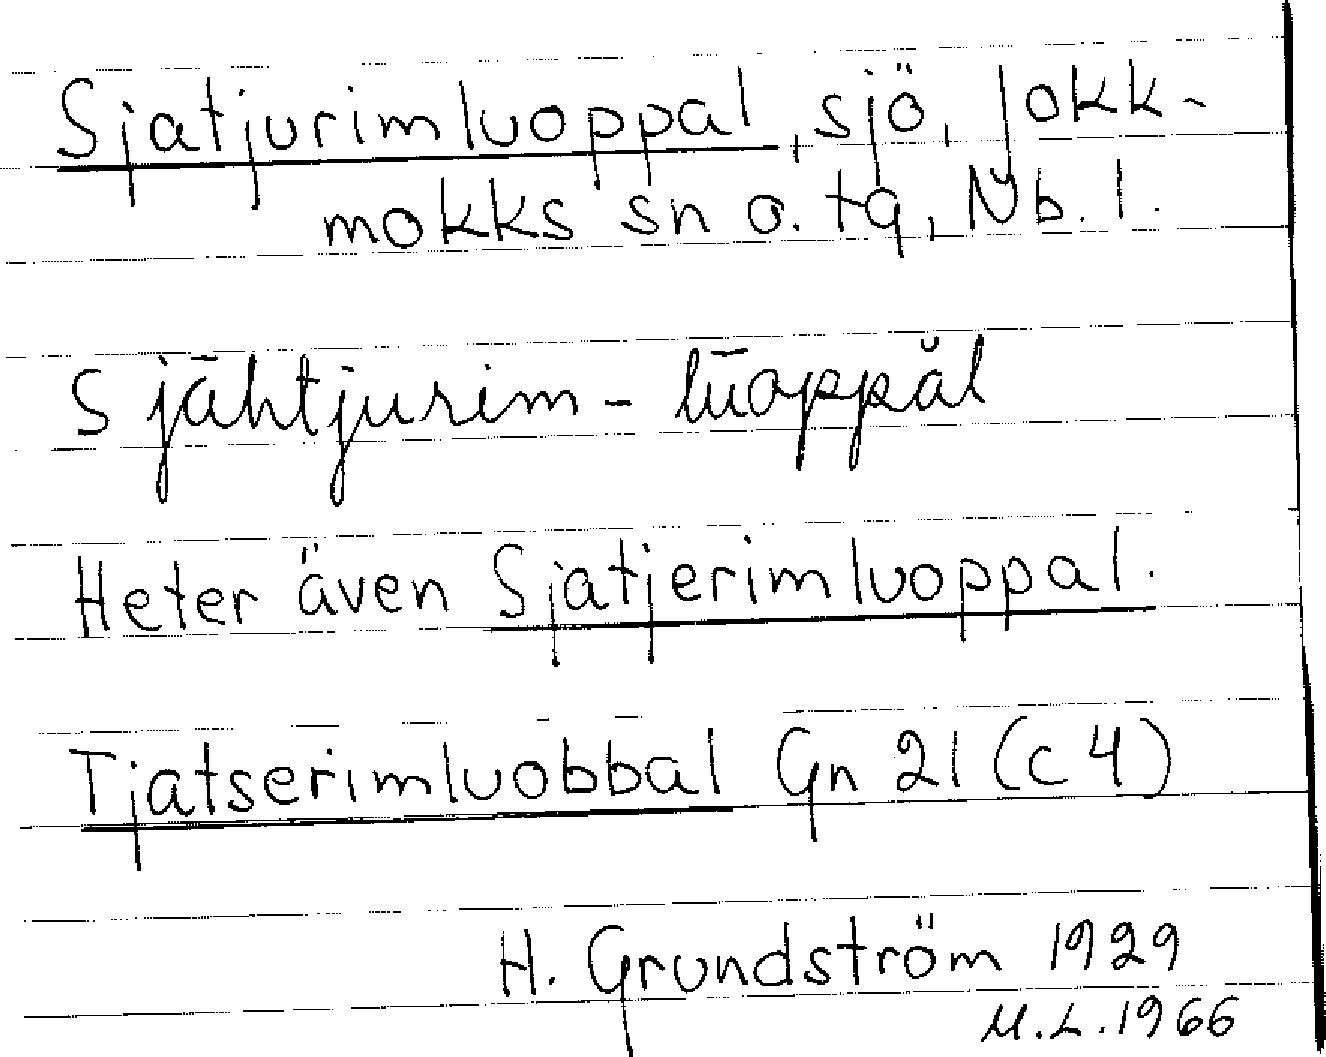 Sjatjurimluoppal, sjö, Jokk-
mokks sn o. tg, Nb. l.
Sjāhtjurim - lūoppăl
Heter även Sjatjerimluoppal.
Tjatserimluobbal Gn 21 (c 4)
H. Grundström 1929
M.L. 1966